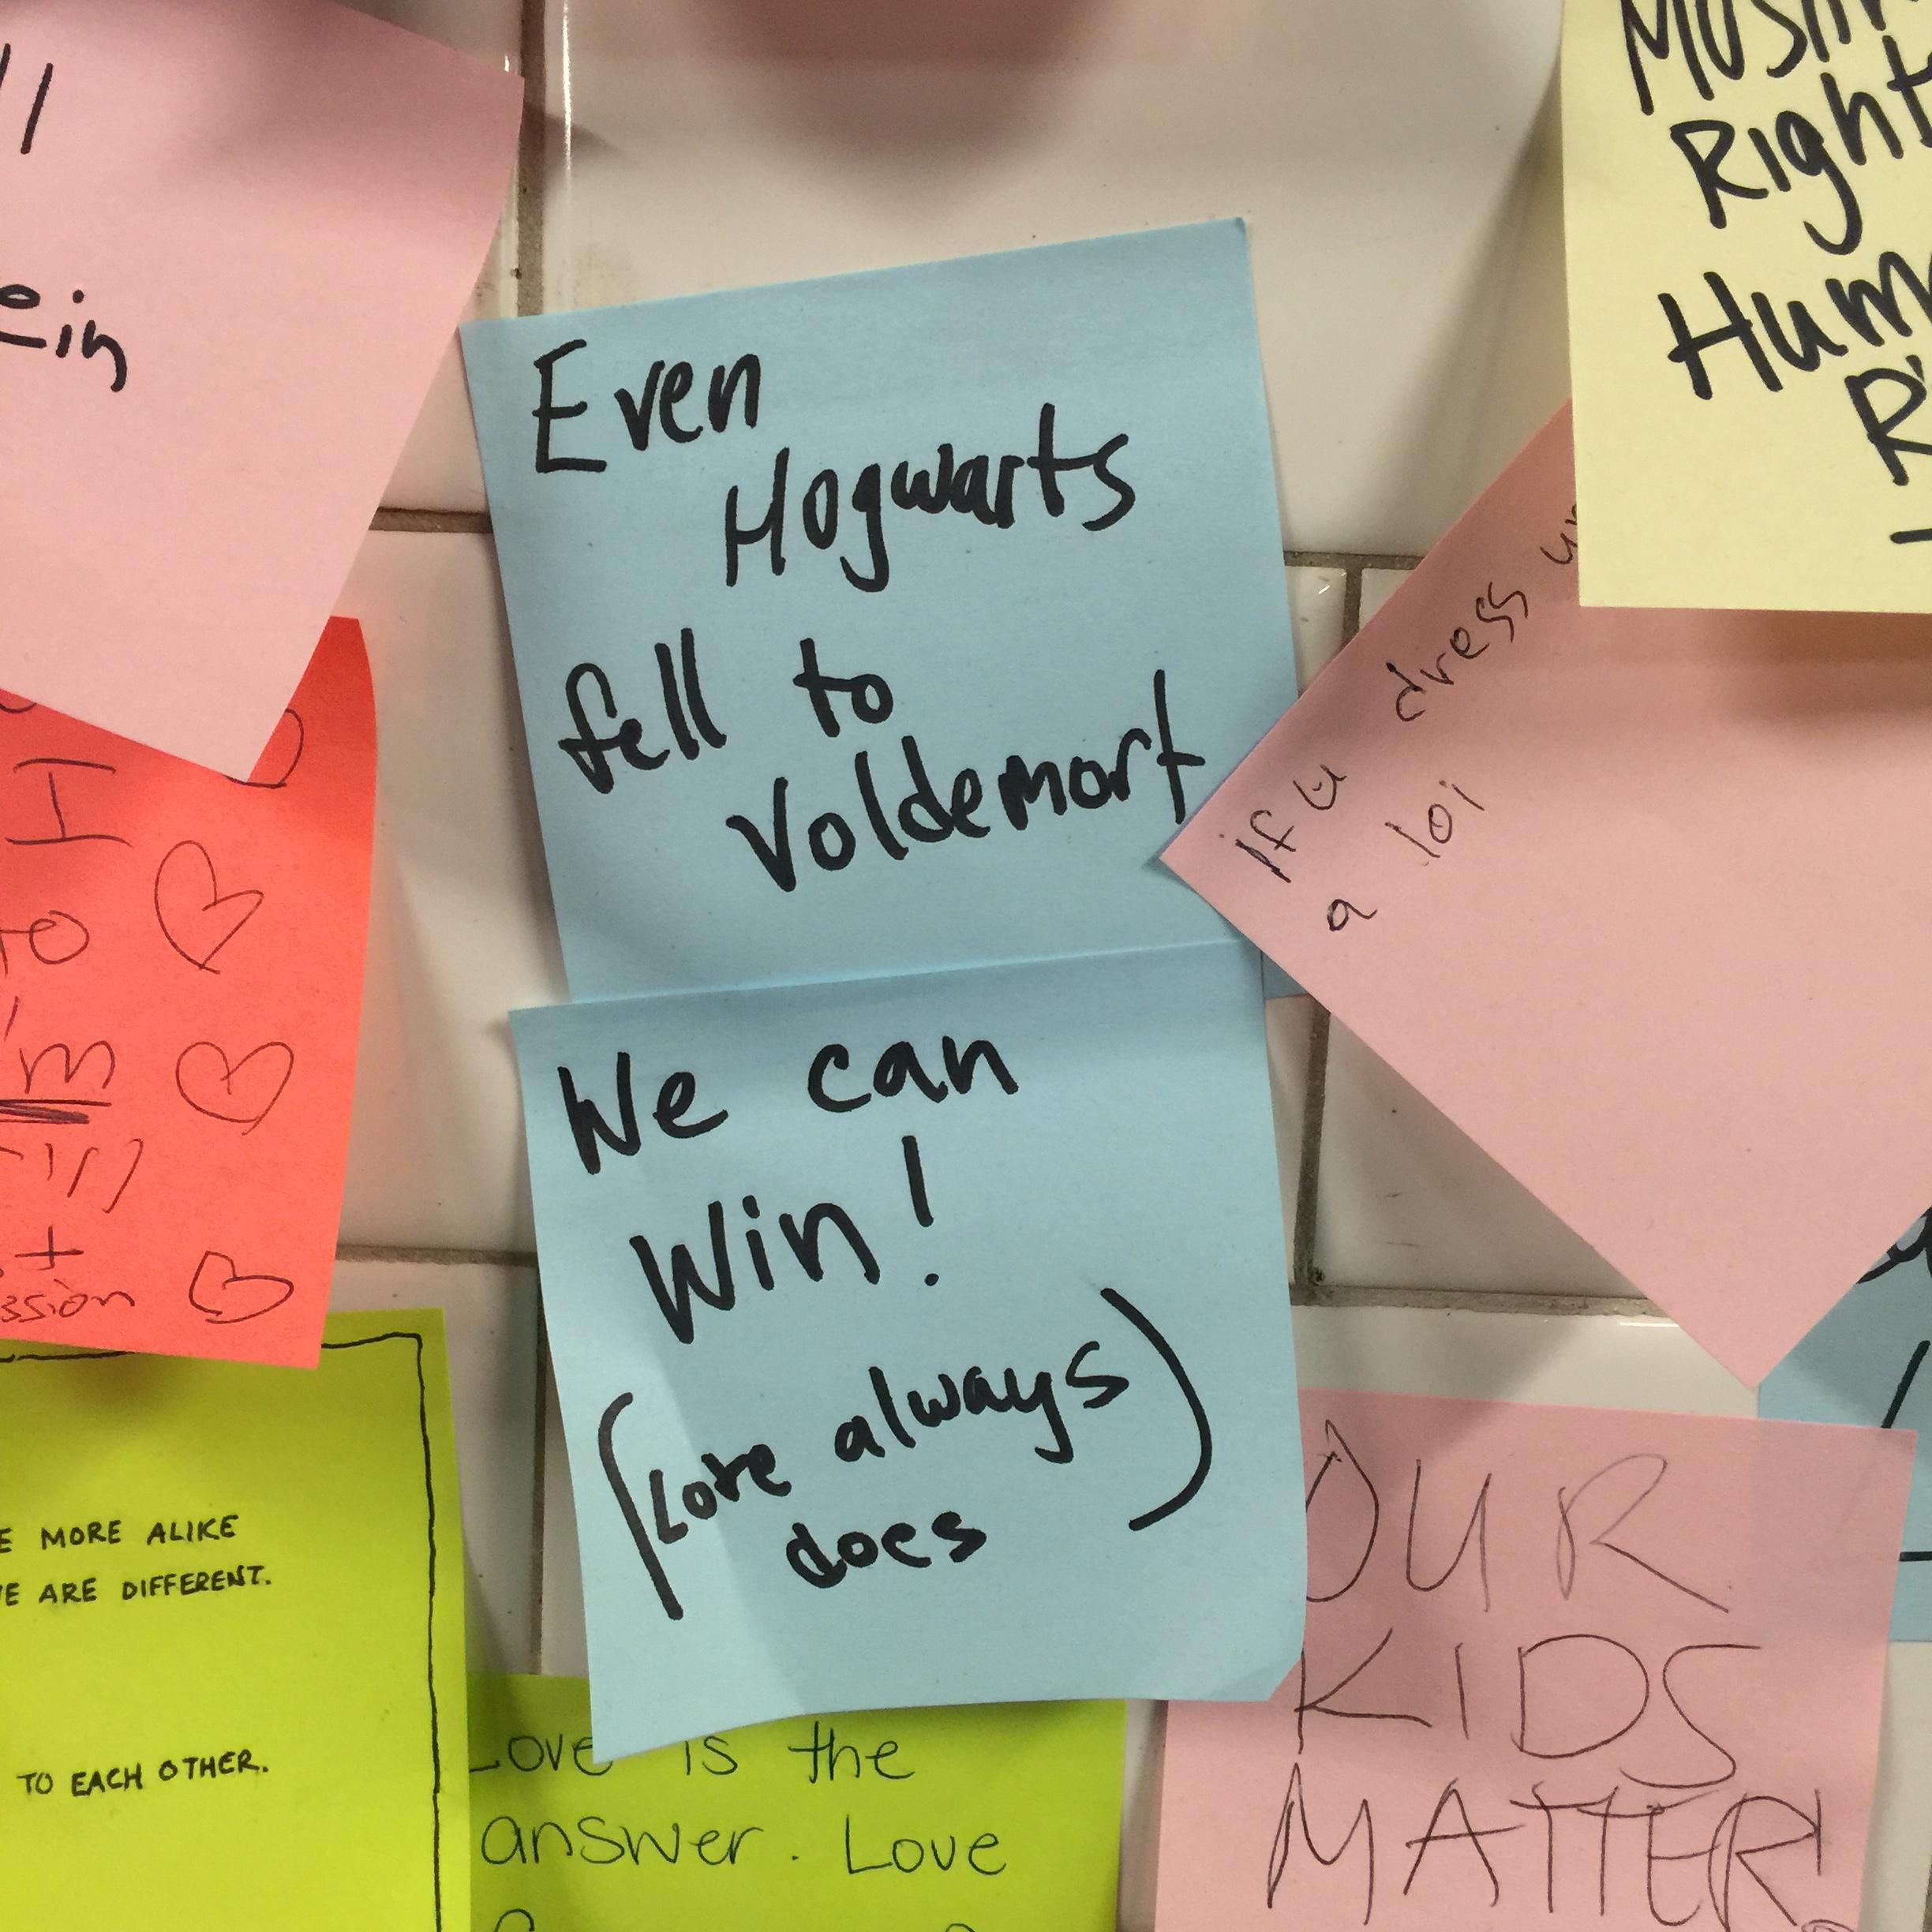 Even
Hogwarts
fell to
Voldemort
We can
Win!
(Love always)
does
Right
if u dress
a
I
to
'm
E MORE ALIKE
E ARE DIFFERENT.
TO EACH OTHER.
Love is the
answer. Love
OUR
KIDS
MATTER!